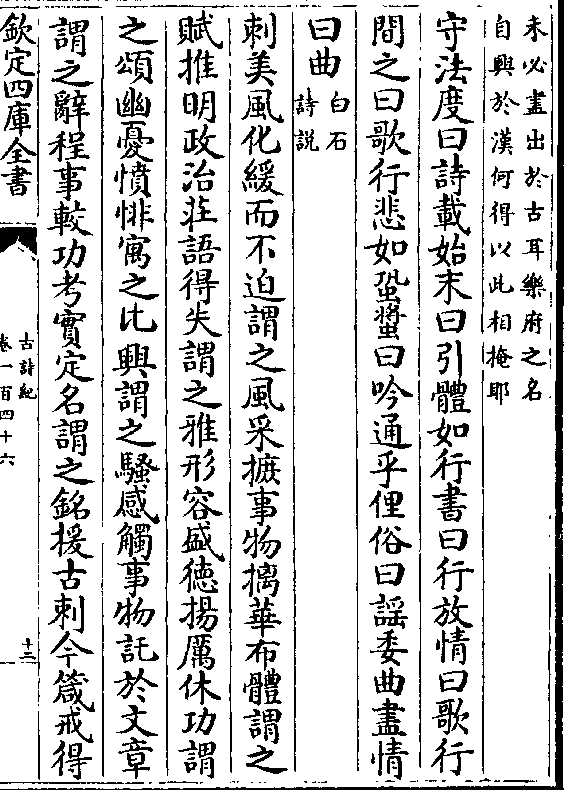 未必盡出於古耳樂府之名
自興於漢何得以此相掩耶
守法度曰詩載始末曰引體如行書曰行放情曰歌行
間之曰歌行悲如蛩螿曰吟通乎俚俗曰謡委曲盡情
曰曲白石
詩説
刺美風化緩而不迫謂之風采摭事物摛華布體謂之
賦推明政治莊語得失謂之雅形容盛德揚厲休功謂
之頌幽憂憤悱寓之比興謂之騷感觸事物託於文章
謂之辭程事較功考實定名謂之銘援古刺今箴戒得
欽定四庫全書
古詩紀
卷一百四十六
十二